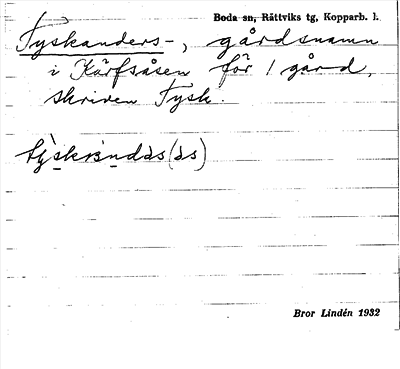 Boda sn, Rättviks tg, Kopparb. l.
Tyskanders-, gårdsnamn
i Kärfsåsen för 1 gård,
skriven Tysk.
Bror Lindén 1932